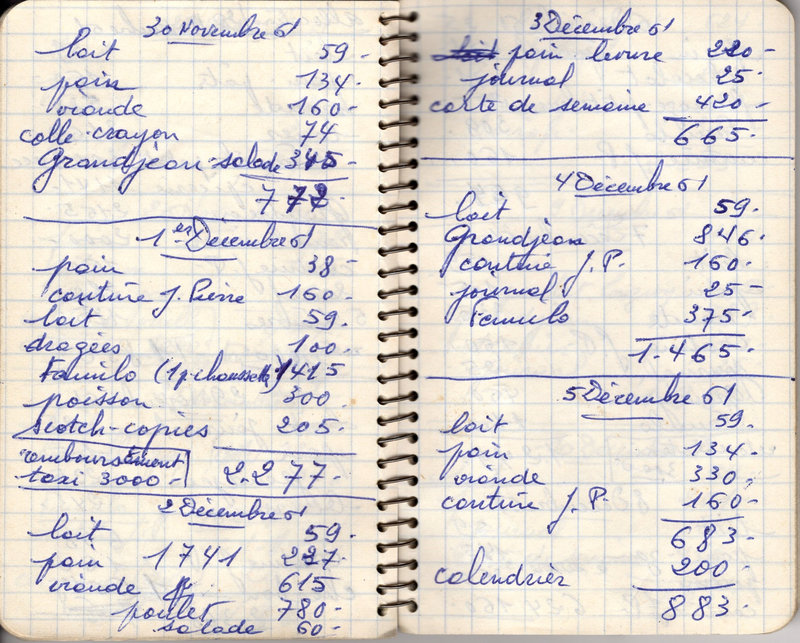 30 Novembre 61
lait 59-
pain 134-
viande 160-
colle-crayon 74
Grandjean-salade 345-
772-
1er Décembre 61
pain 38-
couture J. Pierre 160-
lait 59.
dragées 100-
Familo (1 p. chaussett) 1415
poisson 300
scotch-copies 205-
remboursement
taxi 3000-
2.277-
2 Décembre 61
lait 59-
pain 1741 227-
viande 615
poulet 780-
salade 60-
3 Décembre 61
lait pain levure 220-
journal 25-
carte de semaine 420-
665-
4 Décembre 61
lait 59.
Grandjean 846.
couture J. P. 160.
journal 25-
Familo 375-
1.465-
5 Décembre 61
lait 59.
pain 134-
viande 330-
couture J. P. 160-
683-
calendrier 200-
883-